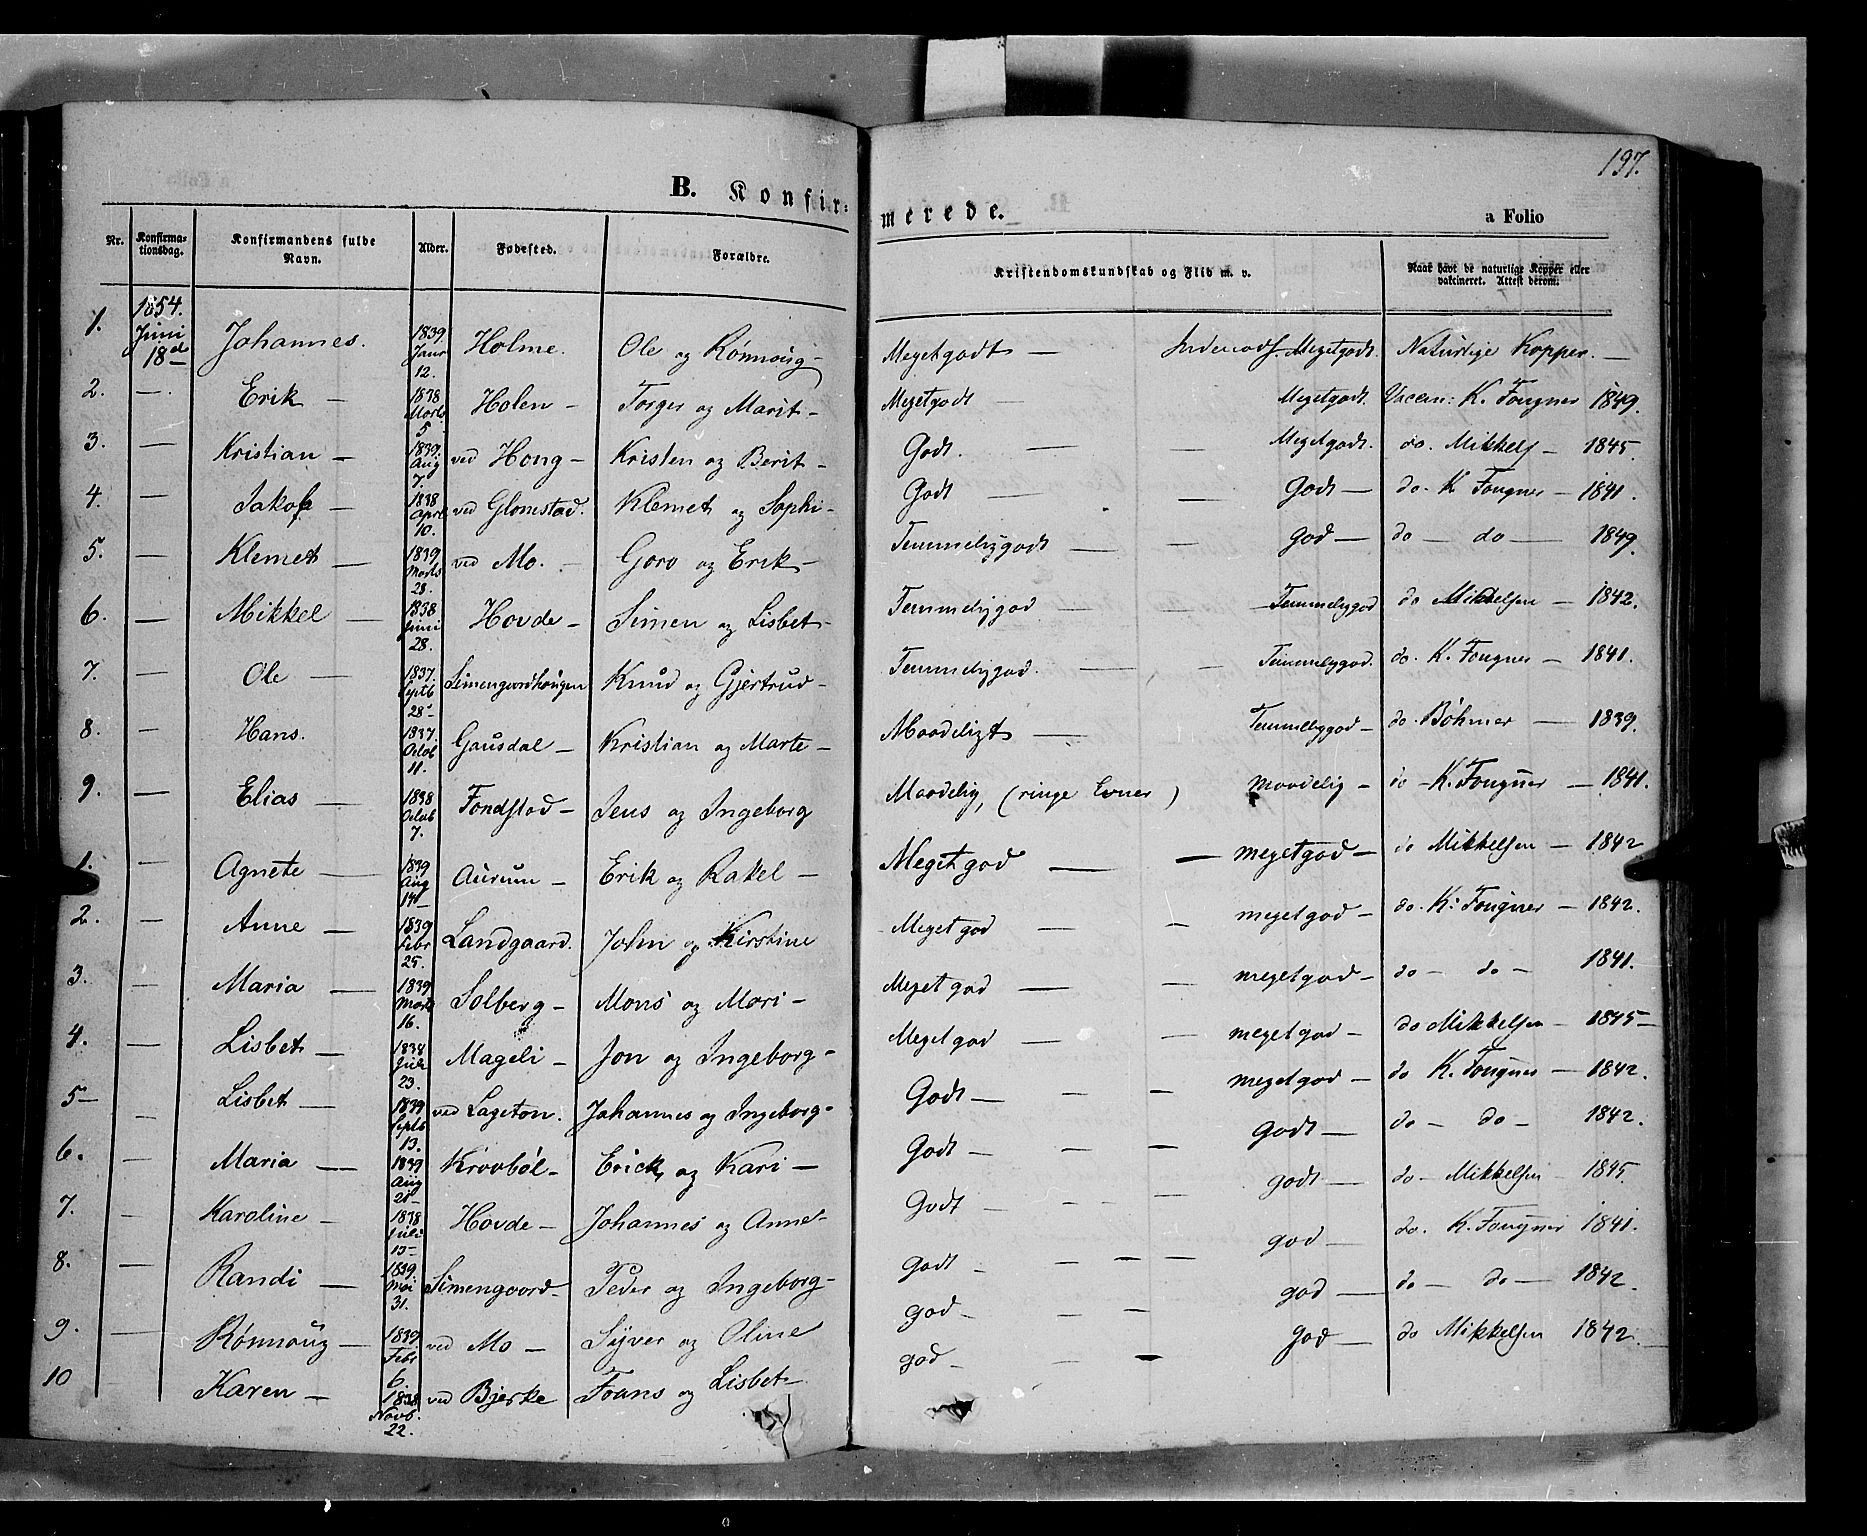 197.
B. Konfir: merede. a Folio
Nr. Konfirma-tionsdag. Konfirmandens fulde Navn. Alder. Fødested. Forældre. Kristendomskundskab og Flid m. v. Naar havt de naturlige Kopper eller vakcineret. Attest derom.
1. 1854. Juni 18d Johannes. 1839. Janr 12. Holme. Ole og Rønnoug - Megetgodt — Megetgodt. Naturlige Kopper. —
2. — Erik — 1838 Marts 5 Holen - Torger og Marit - Megetgodt — Megetgodt. Vaccin: K. Fougner 1849.
3. — Kristian — 1839. Aug 7. ved Hong - Kristen og Berit - Godt. — — Megetgodt. do. Mikkels — 1845.
4. — Jakob — 1838 April 10. ved Glomstad. Klemet og Sophi - Godt — — Godt — do. K Fougner - 1841.
5. — Klemet — 1839 Marts 28. ved Mo. - Goro og Erik - Temmeliggodt — — god — do — do — 1849.
6. — Mikkel — 1838 Juni 28. Hovde - Simen og Lisbet - Temmeliggod — — Temmeliggod do Mikkelsen - 1842.
7. — Ole — 1837. Septb 28 - Simengaardhougen Knud og Gjertrud - Temmeliggod. — — Temmeliggod. do. K. Fougner — 1841.
8. — Hans. 1837. Octob 11. Gausdal — Kristian og Marte - Maadeligt — Temmeliggod - do. Bøhmer — 1839.
9. — Elias — 1838 Octob 7. Fondstad - Jens og Ingeborg Maadelig, (ringe Evner) maadelig - do - K. Fougner — 1841.
1. — Agnete — 1839 Aug 14 Aurum - Erik og Rakel — Megetgod — — megetgod — do Mikkelsen — 1842
2. — Anne — 1839 Febr 25. Landgaard. John og Kirstine Megetgod — - megetgod — do. K. Fougner — 1842.
3. — Maria — 1839 Marts 16. Solberg - Mons og Mari - Megetgod — - megetgod — do — do — 1841.
4. — Lisbet — Juli 23. Mageli - Jon og Ingeborg - Megetgod — — megetgod - do Mikkelsen - 1845 -
5 - — Lisbet — 1839 Septb 13. ved Lageton. Johannes og Ingeborg - Godt — — — megetgod - do K. Fougner - 1842.
6. — Maria — 1839 Aug Krovbøl - Erick og Kari — Godt — — — godt — do — do - 1842.
7. — Karoline - 1838 Juli 15 - Hovde - Johannes og Anne - Godt — — — godt — do - Mikkelsen 1845.
8. — Randi — 1839. Mai 31. Simengaard - Peder og Ingeborg - godt — - — god — do. K. Fougner 1841.
9. — Rønnoug — 1839. Febr 6. ved Mo — Syver og Oline god — - — god — do — do — 1842.
10 Karen — 1838 Novb. 22. ved Bjerke Frans og Lisbet - god - — — God — do Mikkelsen 1842.